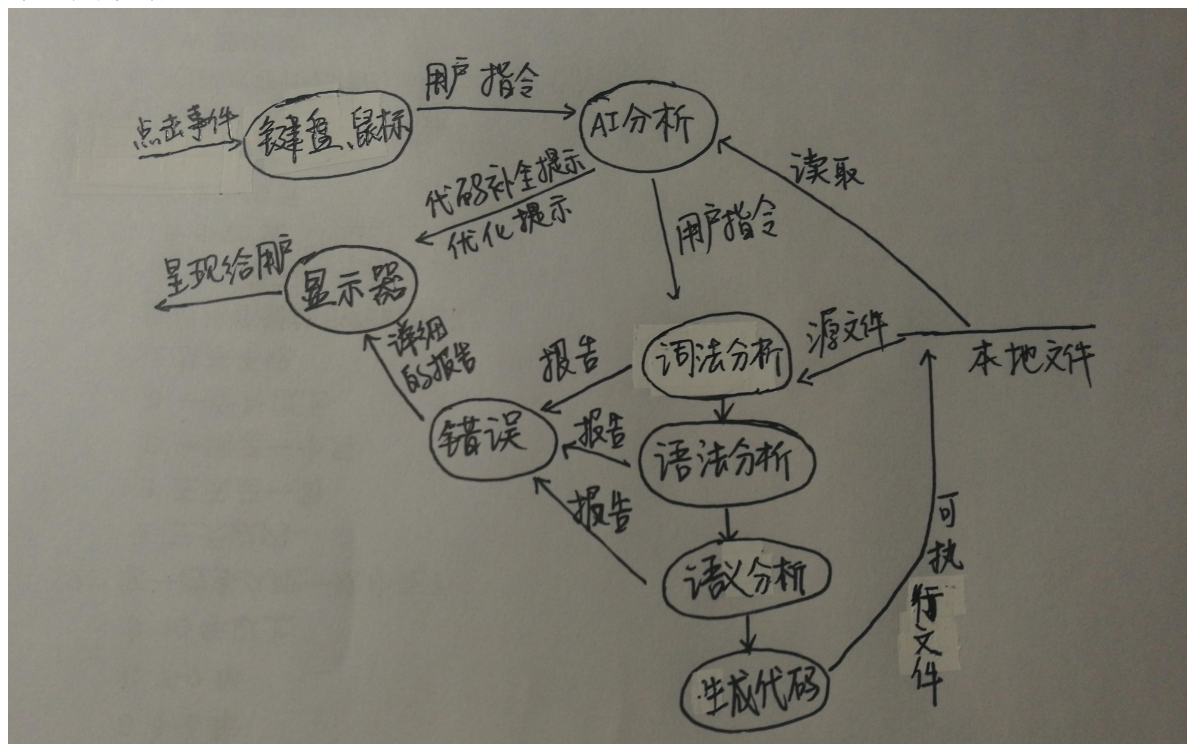 用户指令
点击事件
键盘、鼠标
AI分析
读取
代码补全提示
优化提示
用户指令
呈现给用户
显示器
详细
的报告
报告
词法分析
源文件
本地文件
错误
报告
语法分析
报告
语义分析
可执行文件
生成代码